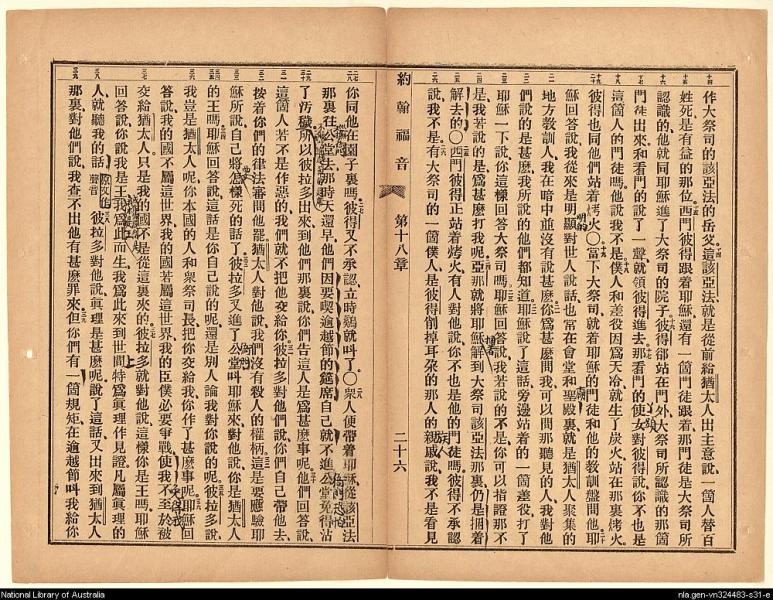 作大祭司的該亞法的岳父這該亞法就是從前給猶太人出主意說一個人替百
姓死是有益的那位西門彼得跟着耶穌還有一個門徒跟着那門徒是大祭司所
認識的他就同耶穌進了大祭司的院子彼得卻站在門外大祭司所認識的那箇
門徒出來和看門的說了一聲就領彼得進去那看門的使女對彼得說你不也是
這箇人的門徒嗎他說我不是僕人和差役因爲天冷就生了炭火站在那裏烤火
彼得也同他們站着烤火〇當下大祭司就着耶穌的門徒和他的教訓盤問他耶
穌回答說我從來是明顯對世人說話也常在會堂和聖殿裏就是猶太人聚集的
地方教訓人我在暗中並沒有說甚麼你爲甚麼問我可以問那聽見的人我對他
們說的是甚麼我所說的他們都知道耶穌說了這話旁邊站着的一箇差役打了
耶穌一下說你這樣回答大祭司嗎耶穌回答說我若說的不是你可以指證那不
是我若說的是爲甚麼打我呢亞那就將耶穌解到大祭司該亞法那裏仍是捆着
解去的〇西門彼得正站着烤火有人對他說你不也是他的門徒嗎彼得不承認
說我不是有大祭司的一箇僕人是彼得削掉耳朵的那人的親戚說我不是看見
約翰福音 第十八章 二十六
你同他在園子裏嗎彼得又不承認立時鷄就叫了〇衆人便帶着耶穌從該亞法
那裏往公堂去那時天還早他們因要喫逾越節的筵席自己就不進公堂免得沾
了汚穢所以彼拉多出來到他們那裏說你們告這人是爲甚麼事呢他們回答說
這箇人若不是作惡的我們就不把他交給你彼拉多對他們說你們自己帶他去
按着你們的律法審問他罷猶太人對他說我們沒有殺人的權柄這是要應驗耶
穌所說自己將怎樣死的話了彼拉多又進了公堂叫耶穌來對他說你是猶太人
的王嗎耶穌回答說這話是你自己說的呢還是別人論我對你說的呢彼拉多說
我豈是猶太人呢你本國的人和衆祭司長把你交給我你作了甚麼事呢耶穌回
答說我的國不屬這世界我的國若屬這世界我的臣僕必要爭戰使我不至於被
交給猶太人只是我的國不是從這裏來的彼拉多就對他說這樣你是王嗎耶穌
回答說你說我是王我爲此而生我爲此來到世間特爲眞理作見證凡屬眞理的
人就聽我的話彼拉多對他說眞理是甚麼呢說了這話又出來到猶太人
那裏對他們說我查不出他有甚麼罪來但你們有一箇規矩在逾越節叫我給你
National Library of Australia
nla.gen-vn324483-s31-e